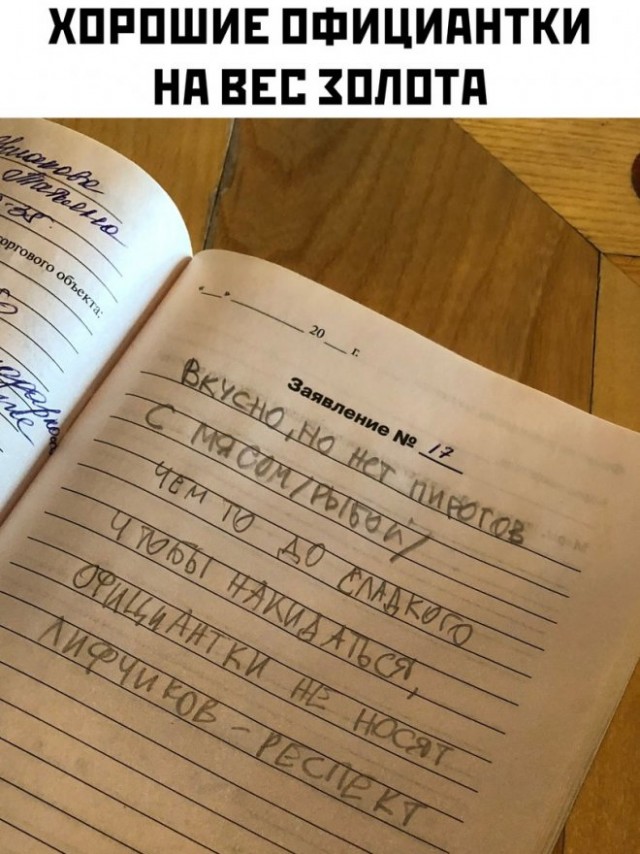 ХОРОШИЕ ОФИЦИАНТКИ
НА ВЕС ЗОЛОТА
торгового объекта:
" " 20 г.
Заявление № 17
ВКУСНО, НО НЕТ ПИРОГОВ
С МЯСОМ/РЫБОЙ/
ЧЕМ ТО ДО СЛАДКОГО
ЧТОБЫ НАКИДАТЬСЯ,
ОФИЦИАНТКИ НЕ НОСЯТ
ЛИФЧИКОВ - РЕСПЕКТ